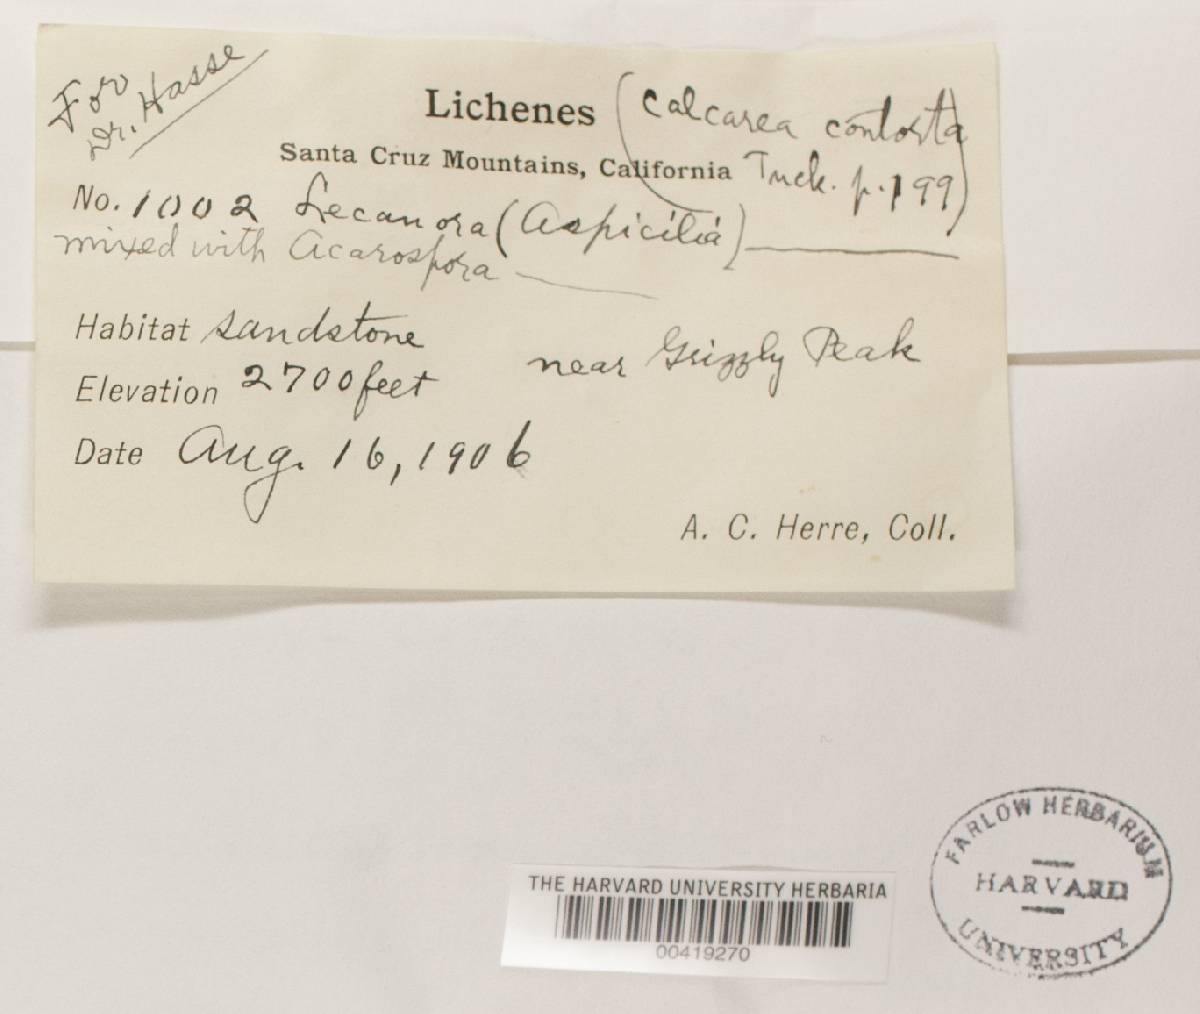 For
Dr. Hasse
Lichenes (calcarea contorta
Santa Cruz Mountains, California Tuck. p. 199)
No. 1002 Lecanora (Aspicilia)
mixed with Acarospora
Habitat sandstone
near Grizzly Peak
Elevation 2700 feet
Date Aug. 16, 1906
A. C. Herre, Coll.
THE HARVARD UNIVERSITY HERBARIA
00419270
FARLOW HERBARIUM
HARVARD
UNIVERSITY